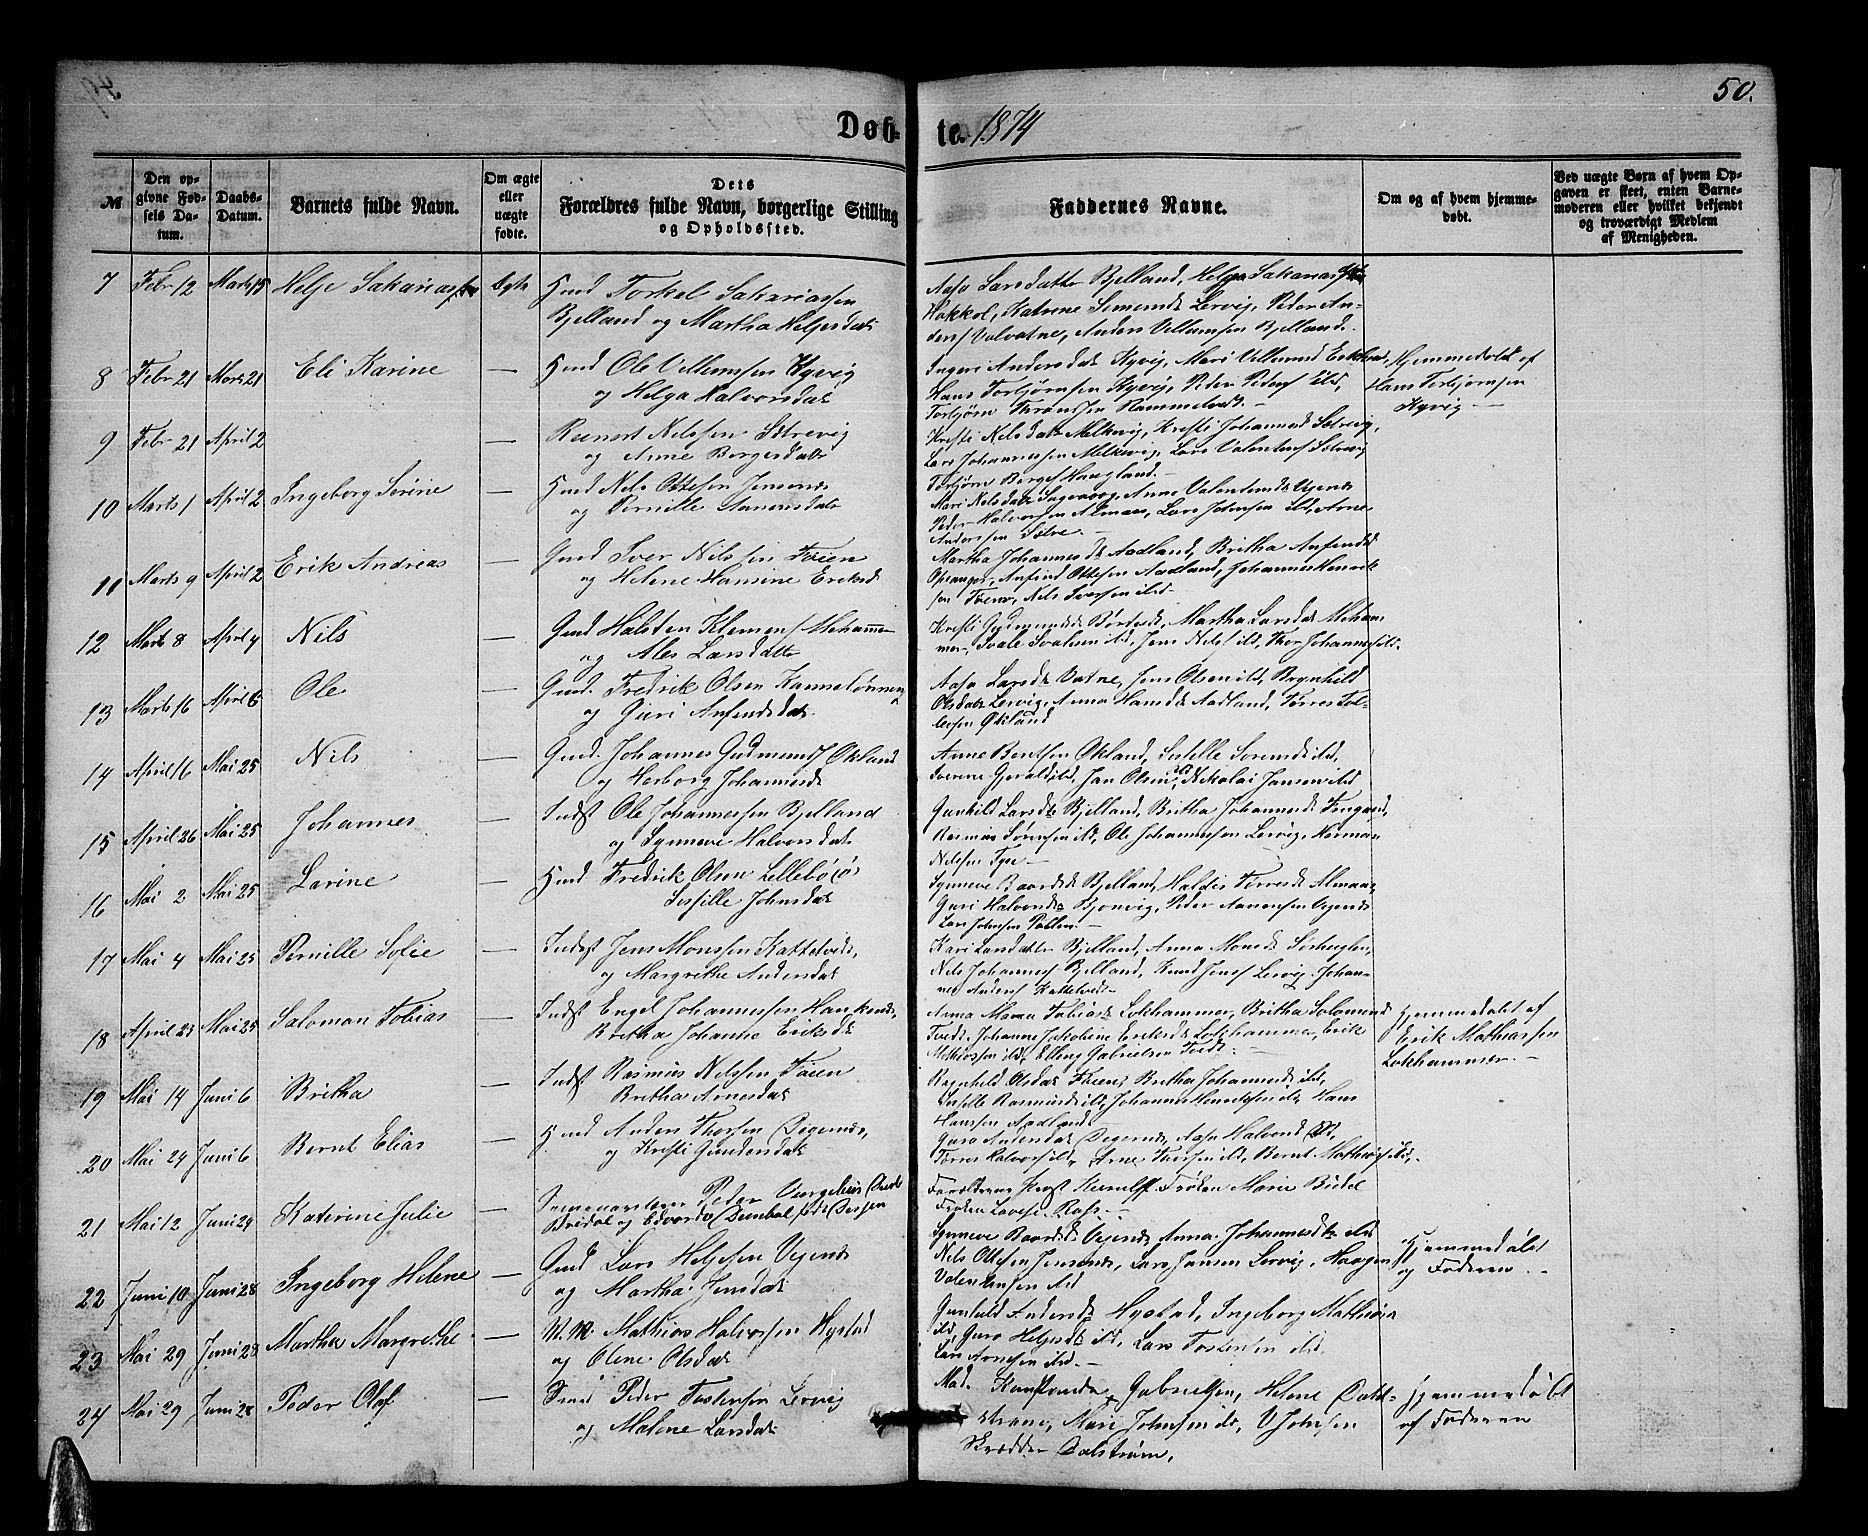 50.
Døb-
te. 1874
№
Den op-
givne Fød-
sels Da-
tum.
Daabs-
Datum.
Barnets fulde Navn.
Om ægte
eller
uægte
fødte.
Dets
Forældres fulde Navn, borgerlige Stilling
og Opholdssted.
Faddernes Navne.
Om og af hvem hjemme-
døbt.
Ved uægte Børn af hvem Op-
gaven er skeet, enten Barne-
moderen eller hvilket bekjendt
og troværdigt Medlem
af Menigheden.
7 Febr 12 Marts 15 Helje Sakariassen Torkel Sakariassen
Bjelland og Martha Heljesdat
Aasa Larsdatter Bjelland, Helge Sakarias
Katrine Simonsd Lervig, Peder An-
ders Valvatne, Anders Villumsen Bjelland.
8 Febr 21 Marts 21 Eli Karine — Ole Villumsen Hyvig
og Helga Halvorsdat
Ingeri Andersdat Hyvig, Mari Villumsd
Hans Torbjørnsen Hyvig, Peder Peders ibd,
Torbjørn
Hjemmedøbt af
Hans Torbjørnsen
Hyvig —
9 Febr 21 April 2 — Nilsen Sætrevig
og Anne Borgesdatr
Kristi Nelsdatr Melkevig, Kristi Johannesd Sætrevig,
Lars Johannessen Melkevig, Lars Valentins Sætrevig
Torbjørn Borges Haagland.—
10 Marts 1 April 2 Ingeborg Serine — Nels Ottesen Jensenes
og Pernille Simonsdatr
Mari Nelsdatr Sagevaag, Anne Valentinsd Vigenes
Peder Halvorsen Almaas, Lars Johnsen ibd, Arne
Anderssen
11 Marts 9 April 2 Erik Andreas — Gmd Iver Nilssen Føien
og Helene Hansine Eriksd
Martha Johannesdt Aadland, Britha Anfindsd
Opsanger, Anfind Ottesen Aadland, Johannes Henrik-
sen Føien, Nels Iversen ibd.—
12 Marts 8 April 4 Nils — Gmd Halsten Klemens Mehamme-
og Ales Larsdatter
Kristi Gudmundsd Børtveit, Martha Larsdt Meham-
mer, Svale Svalesen ibd, Jens Nils ibd, Thor Johannes ibd.
13 Marts 16 April 6 Ole — Gmd. Fredrik Olsen Kannelønnen
og Guri Anfindsdat.
Aasa Larsdt Vatne, Jens Olsen ibd, Ragnhild
Olsdatr Lervig, Anna Hansdt Aadland, Tørres Tol-
lefsen Økland
14 April 16 Mai 25 Nils — Gmd. Johannes Gudmunds Økland
og Herborg Johannesd
Anne Berntsen Økland, Sissille Sørensd ibd,
Serene Gjerald ibd, Jan Olsen ibd, Nikolai Jansen ibd
15 April 26 Mai 25 Johannes — Indst Ole Johannessen Bjelland
og Synneve Halvorsdat
Gunhild Larsdt Bjelland, Britha Johannesdt
Rasmus Sørensen ibd, Ole Johannessen Lervig, Herman
Nilssen Tyse —
16 Mai 2 Mai 25 Larine — Fredrik Olsen Lillebø
Sissille Johnsdat
Synneve Baardsdt Bjelland, Haldis Tørresdt Almaas,
Guri Halvorsdt Bjonvig, Peder Aanensen Vigenes
Lars Johnsen
17 Mai 4 Mai 25 Pernille Sofie — Indst Jens Monssen Kattetveit,
og Margrethe Andersdat
Kari Larsdatter Bjelland, Anna Monsdt
Nils Johanness Bjelland, Knud Jens Lervig, Johan-
nes Anders Kattetveit.—
18 April 23 Mai 25 Salomon Tobias — Indst Engel Johannessen
Britha Johanne Eriksdt
Anna Maria Tobiasdt Lokhammer, Britha Solomonsd
Tvedt, Johanne Jakobine Eriksdt Lokhammer, Erik
Mathiassen ibd, Elling Gabrielsen Tvedt.—
Hjemmedøbt af
Erik Mathiassen
Lokhammer.—
19 Mai 14 Juni 6 Britha — Indst Rasmus Nilssen Føien
Britha Arnesdat
Ragnhild Olsdat Føien, Britha Johannesdt ibd,
Sissille Rasmusdt ibd, Johannes Henriksen ibd, Hans
Hanssen Aadland
20 Mai 24 Juni 6 Bernt Elias — Anders Thorsen Digernes,
og Kristi Gundersdat
Guro Andersdat Digernes, Aasa Halvorsd ibd,
Tørres Halvors ibd, Arne Thorsen ibd, Bernt Mathias ibd.
21 Mai 12 Juni 29 Katerine Julie — Seminarlærer Peder
Bredal og
Forældrene, Frøken Marie Bredal
Frøken
22 Juni 10 Juni 28 Ingeborg Helene — Gmd Lars Heljesen Vigenes
og Martha Jensdat
Synneve Baardsdt Vigenes, Anna Johannesdtr ibd
Nels Ottesen Jensenes, Lars Jansen Lervig, Haagen
Valentinsen ibd
Hjemmedøbt
af Faderen.—
23 Mai 29 Juni 28 Martha Margrethe — Mathias Halvorsen Hystad
og Olene Olsdat
Gunhild Andersdt Hystad, Ingeborg Mathias
ibd, Guro Heljesdt ibd, Lars Tostensen ibd.
Lars Arnesen ibd.—
24 Mai 29 Juni 28 Peder Olaf — Peder Tostensen Lervig
og Malene Larsdat
Mad. Gabrielsen, Helene Dahl-
strøm, Mari Johnsen ibd, V Johnsen
Skrædder Dalstrøm,
Hjemmedøbt
af Faderen